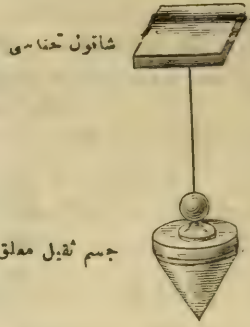 شاقول نحاسي
جسم ثقيل معلق